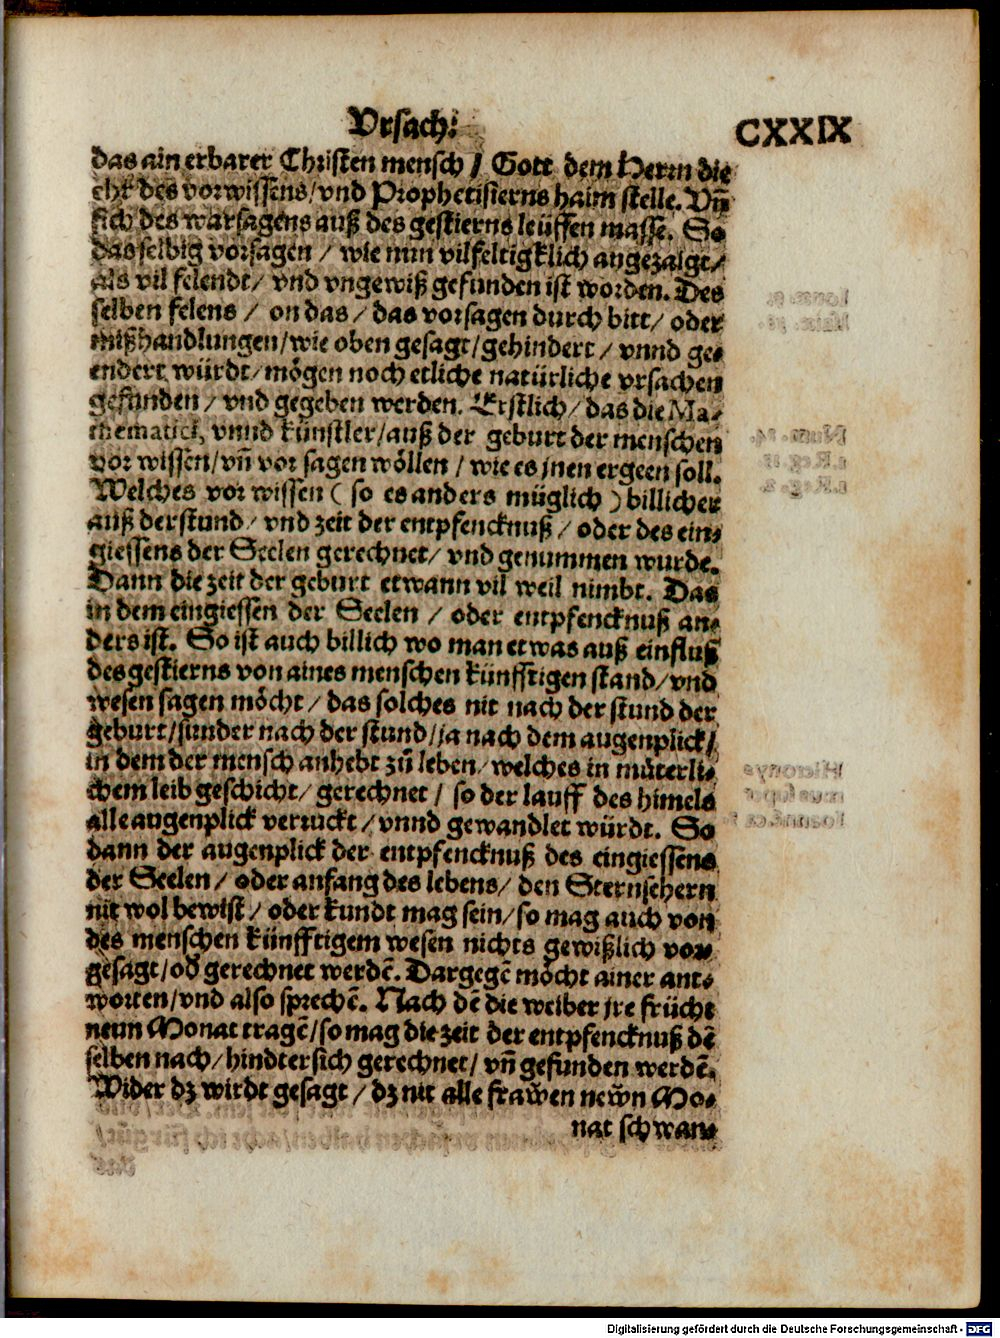 Vrsach:
CXXIX
das ain erbarer Christen mensch / Gott dem Herrn die
ehr des vorwissens / vnd Prophetisierns haim stelle. Vñ
sich des warsagens auß des gestierns leüffen masse. So
dasselbig vorsagen / wie nun vilfeltigklich angezaigt /
als vil felendt / vnd vngewiß gefunden ist worden. Des
selben felens / on das / das vorsagen durch bitt / oder
mißhandlungen / wie oben gesagt / gehindert / vnnd ge-
endert würdt / mögen noch etliche natürliche vrsachen
gefunden / vnd gegeben werden. Erstlich / das die Ma-
thematici, vnnd künstler / auß der geburt der menschen
vor wissen / vñ vor sagen wöllen / wie es jnen ergeen soll.
Welches vor wissen ( so es anders müglich ) billicher
auß der stund / vnd zeit der entpfencknuß / oder des ein-
giessens der Seelen gerechnet / vnd genummen wurde.
Dann die zeit der geburt etwann vil weil nimbt. Das
in dem eingiessen der Seelen / oder entpfencknuß an-
ders ist. So ist auch billich wo man etwas auß einfluß
des gestierns von aines menschen künfftigen stand / vnd
wesen sagen möcht / das solches nit nach der stund der
geburt / sunder nach der stund / ja nach dem augenplick /
in dem der mensch anhebt zů leben / welches in můterli-
chem leib geschicht / gerechnet / so der lauff des himels
alle augenplick verruckt / vnnd gewandlet würdt. So
dann der augenplick der entpfencknuß des eingiessens
der Seelen / oder anfang des lebens / den Sternsehern
nit wol bewist / oder kundt mag sein / so mag auch von
des menschen künfftigem wesen nichts gewißlich vor-
gesagt / od gerechnet werdē. Dargegē möcht ainer ant-
worten / vnd also sprechē. Nach dē die weiber jre frücht
neun Monat tragē / so mag die zeit der entpfencknuß dē
selben nach / hindersich gerechnet / vñ gefunden werdē.
Wider dz wirdt gesagt / dz nit alle frawen newn Mo-
nat schwan-
Digitalisierung gefördert durch die Deutsche Forschungsgemeinschaft - DFG